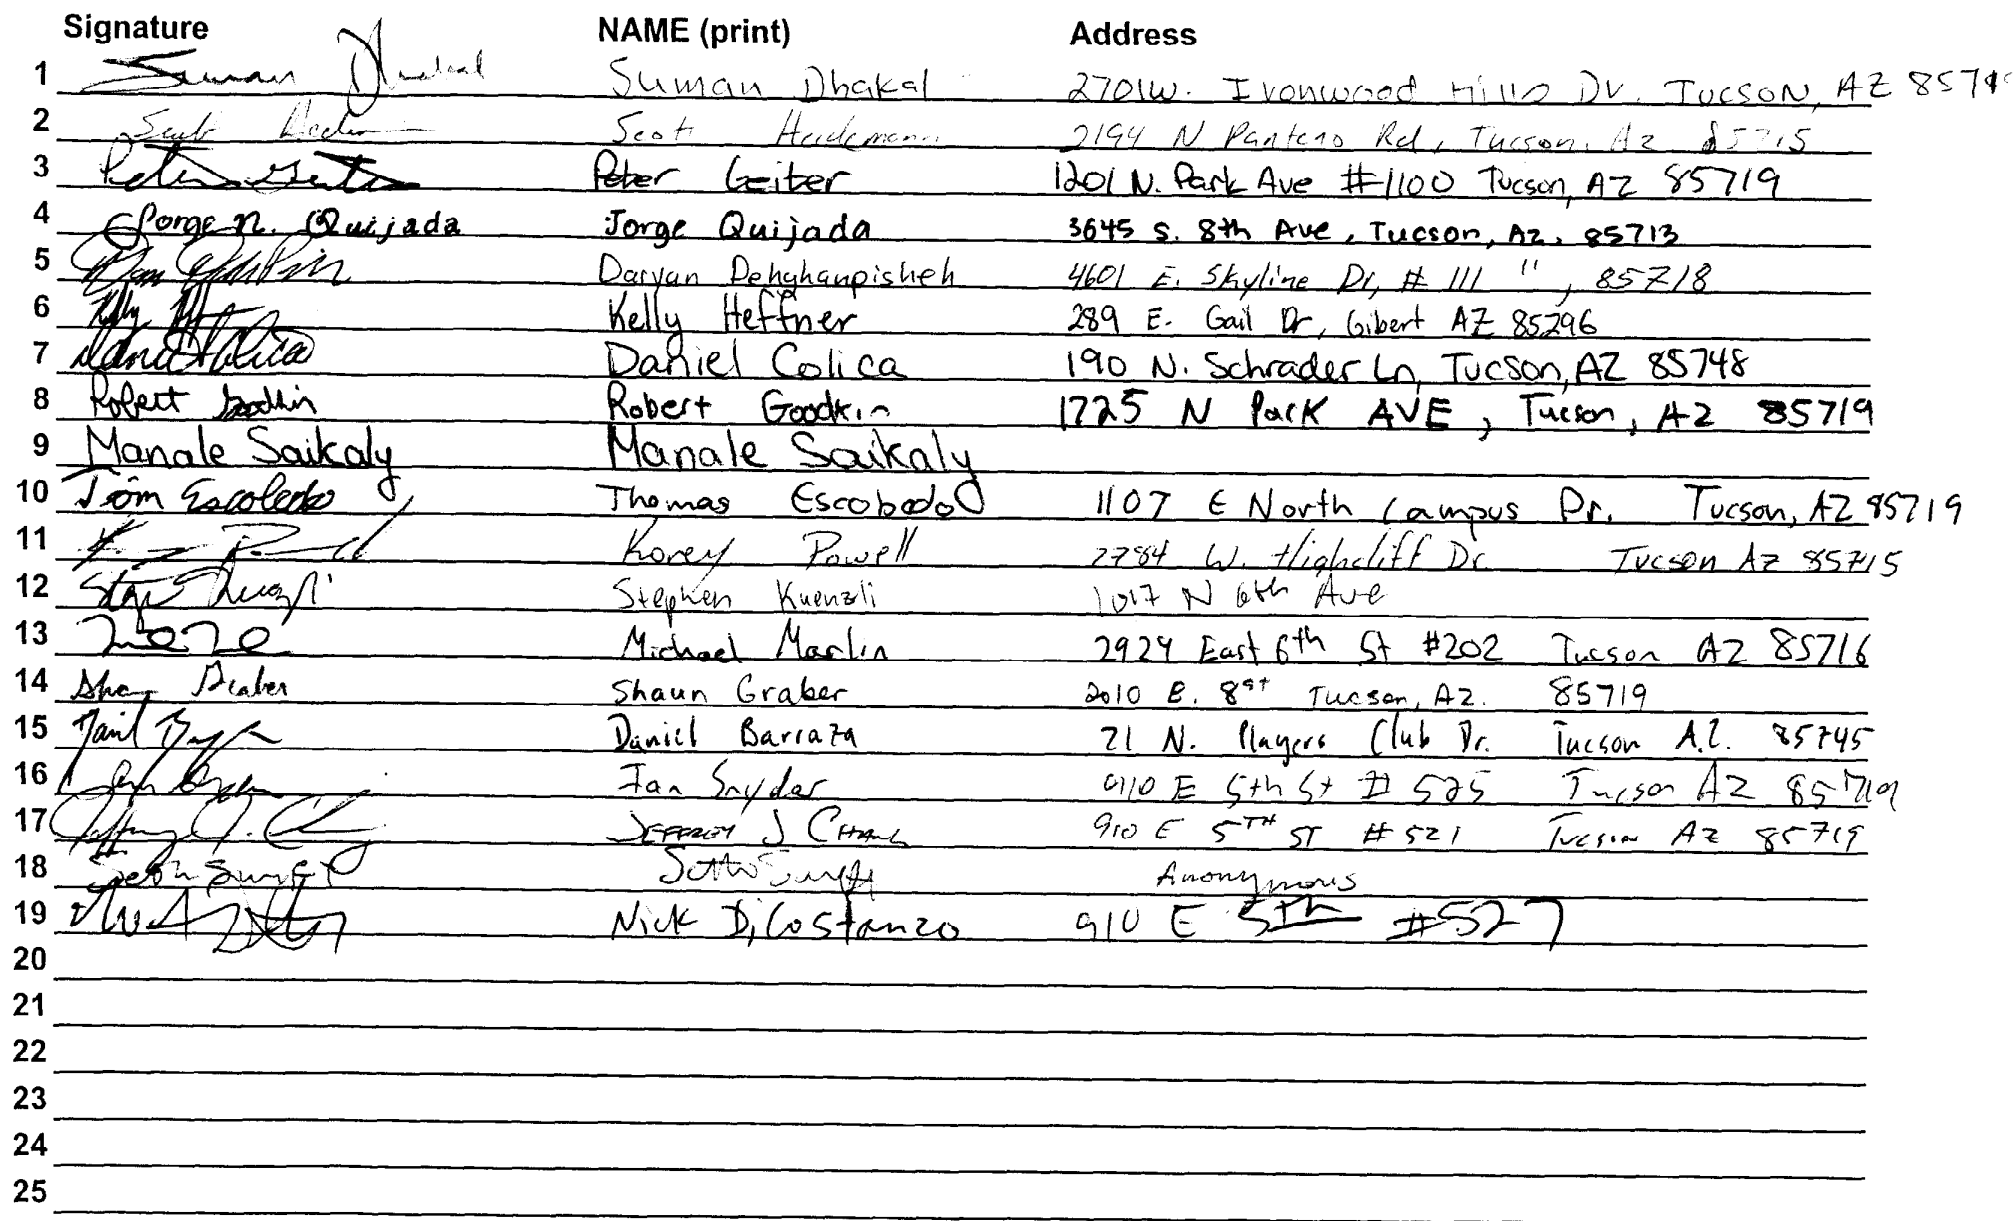 Signature NAME (print) Address
1 Suman Dhakal Suman Dhakal 2701 W. Ironwood Hills Dr. Tucson, AZ
2 Scott Scott Heidemann 2194 N Pantano Rd, Tucson, Az 85715
3 Peter Geiter Peter Geiter 1201 N. Park Ave #1100 Tucson, AZ 85719
4 Jorge N. Quijada Jorge Quijada 3645 S. 8th Ave, Tucson, Az. 85713
5 Daryan Dehghanpisheh 4601 E. Skyline Dr, # 111 ", 85718
6 Kelly Heffner 289 E. Gail Dr, Gibert AZ 85296
7 Daniel Colica Daniel Colica 190 N. Schrader Ln, Tucson, AZ 85748
8 Robert Goodkin Robert Goodkin 1725 N Park AVE, Tucson, AZ 85719
9 Manale Saikaly Manale Saikaly
10 Tom Escobedo Thomas Escobedo 1107 E North Campus Dr. Tucson, AZ 85719
11 Korey Powell 2784 W. Highcliff Dr Tucson Az 85715
12 Stephen Kuenzli 1017 N 6th Ave
13 Michael Marlin 2924 East 6th St #202 Tucson AZ 85716
14 Shaun Graber Shaun Graber 2010 E. 8st Tucson, AZ. 85719
15 Daniel Barraza 21 N. Players Club Dr. Tucson A.Z. 85745
16 Ian Snyder 910 E 5th St # 525 Tucson AZ 85719
17 Jeffrey J. Jeffrey J Chang 910 E 5TH ST #521 Tucson Az 85719
18 Seth Seth Anonymous
19 Nick DiCostanzo 910 E 5th #527
20
21
22
23
24
25